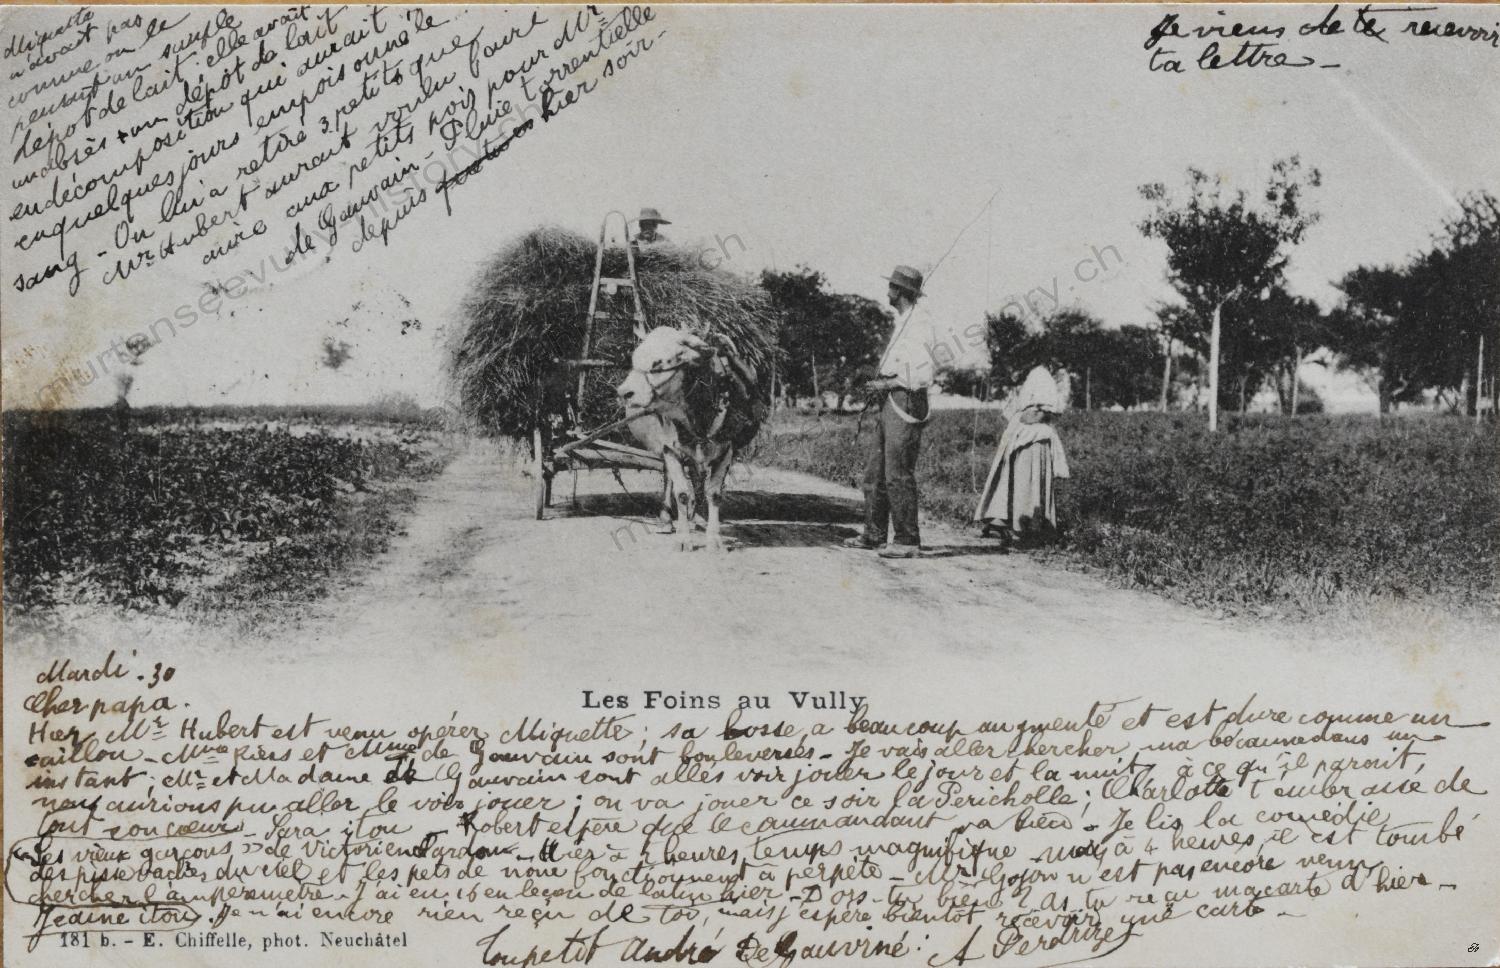 Miquette
n'avait pas
comme on le
pensait un simple
dépôt de lait; elle avait
un abcès + un dépôt de lait
en décomposition qui aurait
en quelques jours empoisonné le
sang - On lui a retiré 3 petits que
Mr Hubert aurait voulu faire
cuire aux petits pois pour Mr
de Gauvain - Pluie torrentielle
depuis hier soir -
Je viens de te recevoir
ta lettre -
Mardi . 30
Cher papa .
Les Foins au Vully
Hier Mr Hubert est venu opérer Miquette ; sa bosse a beaucoup augmenté et est dure comme un
caillou - Mme et Mme de Gauvain sont bouleversés - Je vais aller chercher ma bécanne dans un
instant ; Mr et Madame de Gauvain sont allés voir jouer le jour et la nuit, à ce qu'il parait,
nous aurions pu aller le voir jouer ; on va jouer ce soir la Péricholle ; Charlotte t'embrasse de
tout son coeur - Sara itou Robert espère que le commandant va bien - Je lis la comédie
"Les vieux garçons" de Victorien Sardou - Hier à heures, temps magnifique à 4 heures, il est tombé
des pissevaches du ciel et les pets de none fonctionnent à perpète - Mr n'est pas encore venu
chercher l'ampèremètre - J'ai eu 16 en leçon de latin hier - Dors-tu bien ? As-tu reçu ma carte d'hier -
Jeanne itou Je n'ai encore rien reçu de toi, mais j'espère bientôt recevoir une carte -
181 b. - E. Chiffelle, phot. Neuchâtel
Ton petit André De Gauviné : A Perdrizet
murtenseevully-history.ch
murtenseevully-history.ch